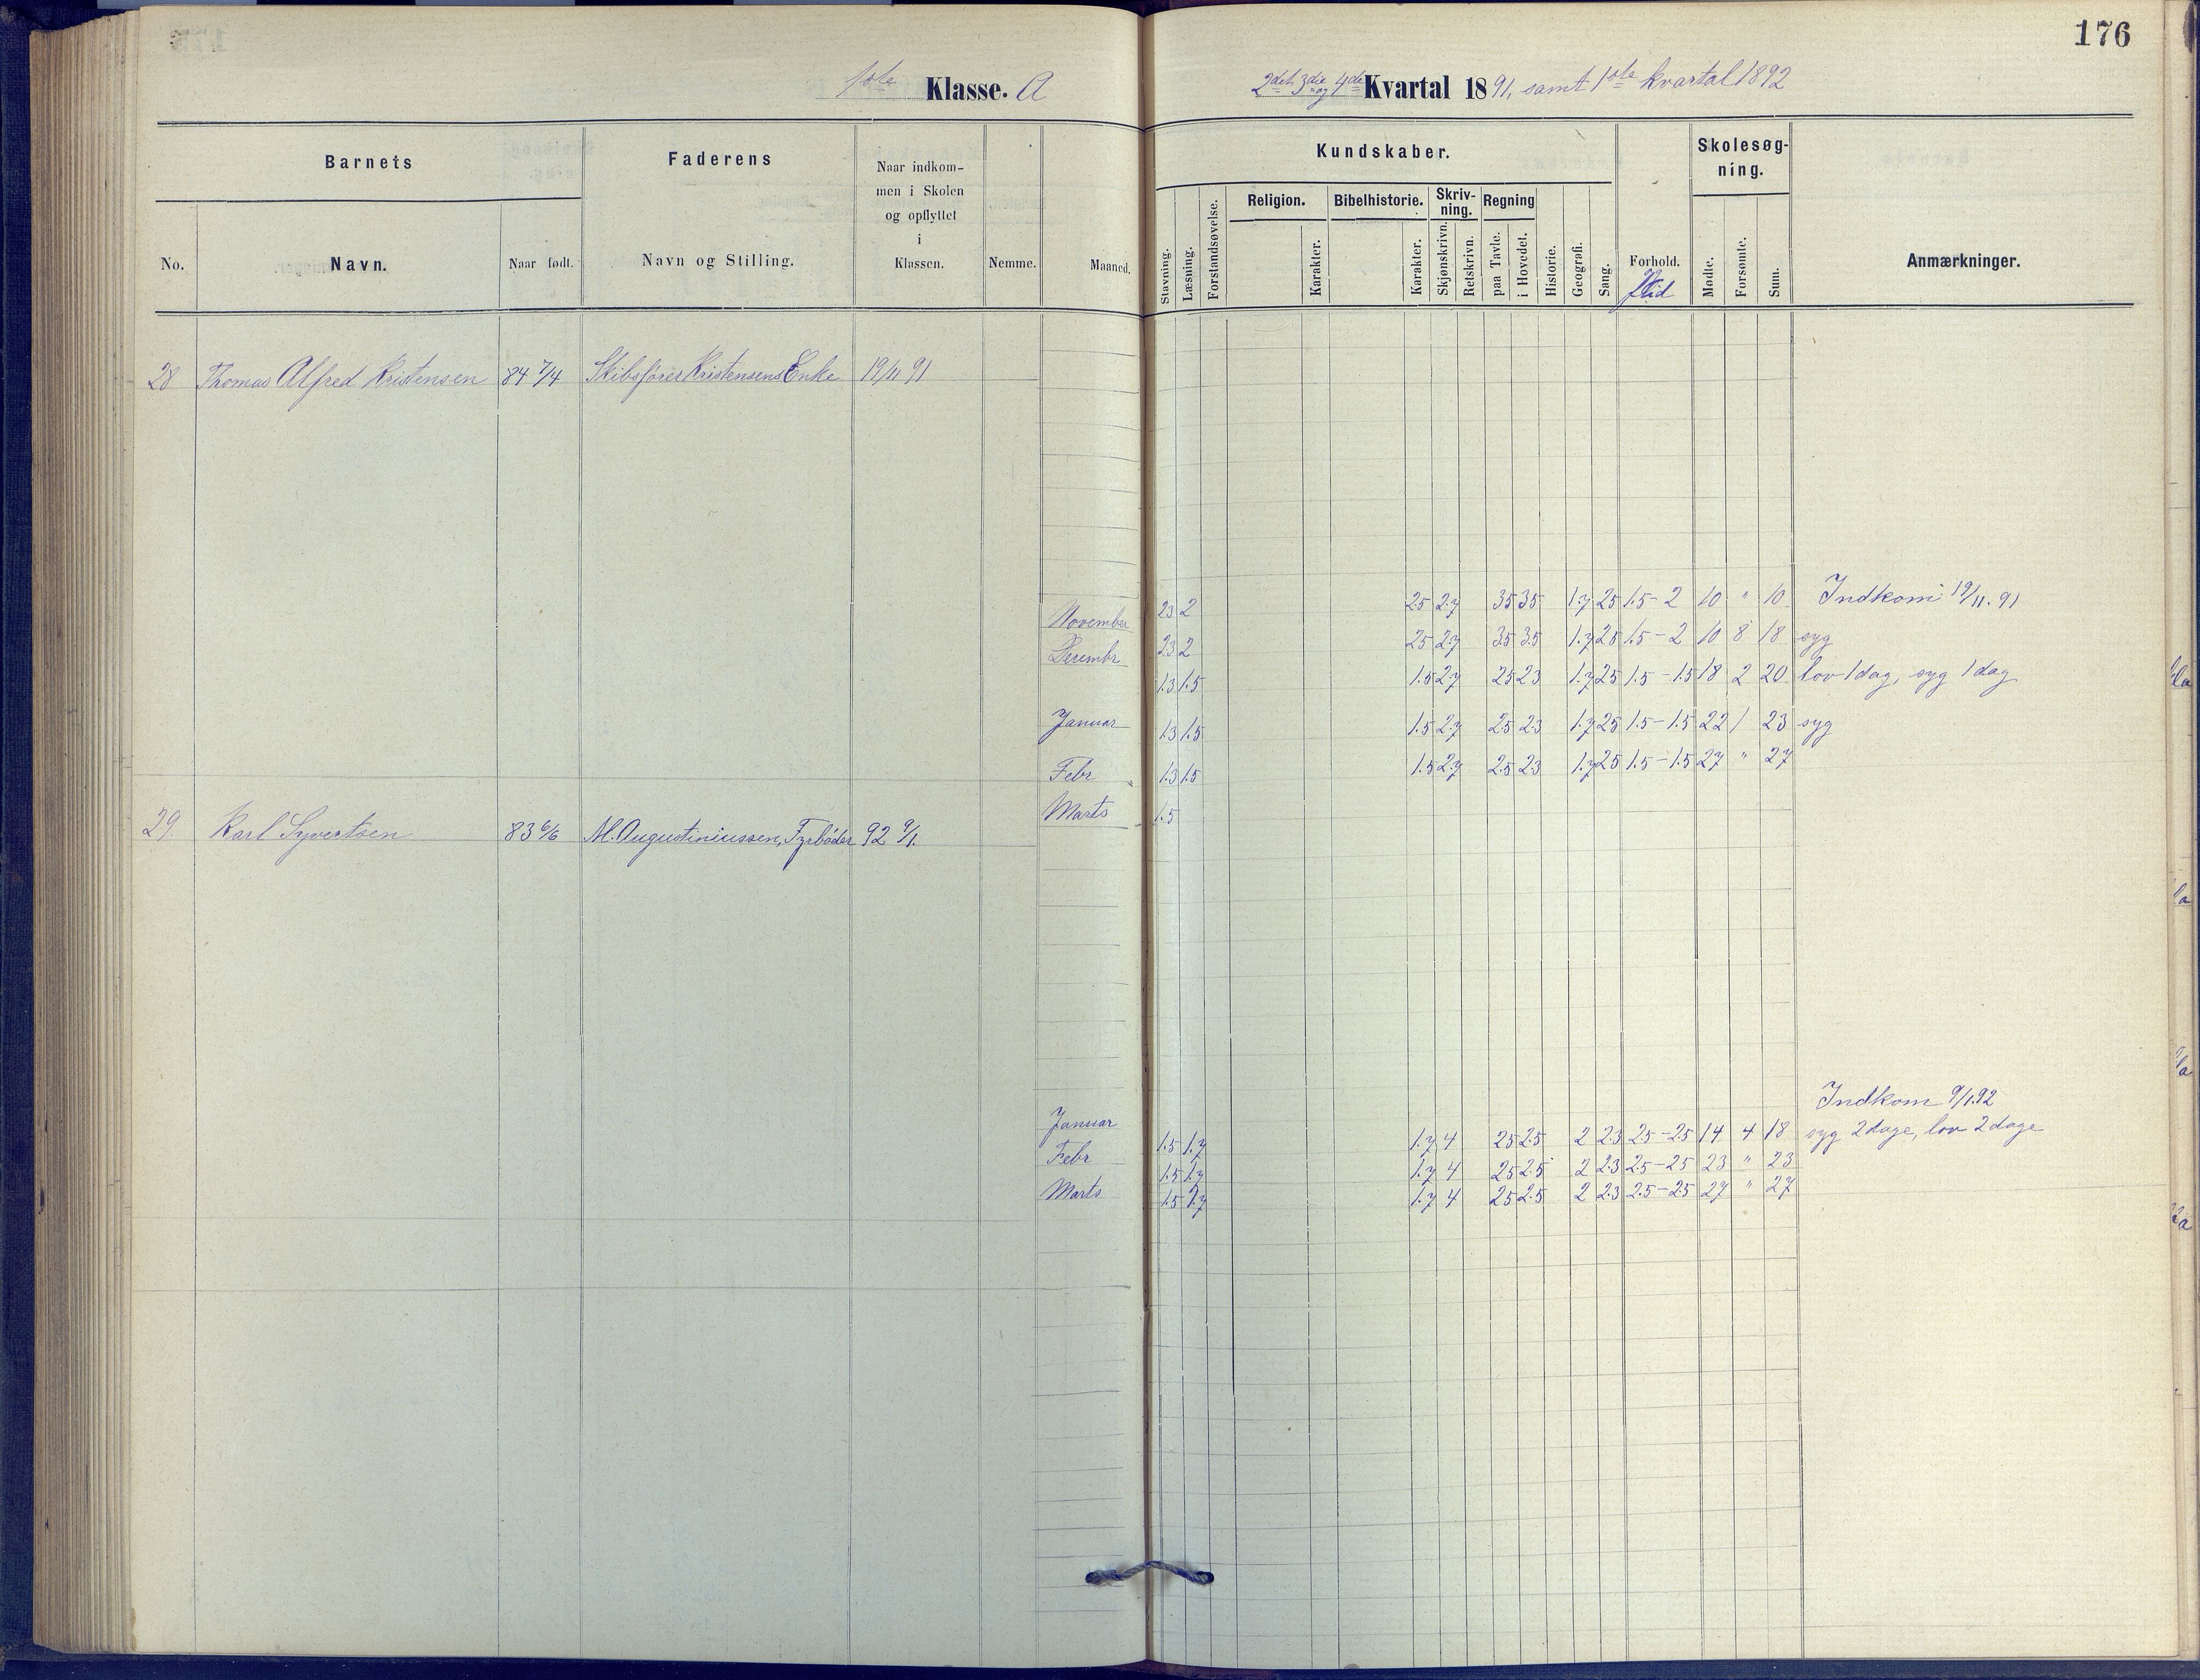 176
1ste Klasse. A
2det 3die og 4de Kvartal 1891, samt 1ste kvartal 1892
Barnets
Faderens
Naar indkom-
men i Skolen
og opflyttet
i
Klassen.
No.
Navn.
Naar født.
Navn og Stilling.
Nemme.
Maaned.
Kundskaber.
Skolesøg-
ning.
Religion.
Bibelhistorie.
Skriv-
ning.
Regning
Stavning.
Læsning.
Forstandsøvelse.
Karakter.
Karakter.
Skjønskrivn.
Retskrivn.
paa Tavle.
i Hovedet.
Historie.
Geografi.
Sang.
Forhold.
Flid
Mødte.
Forsømte.
Sum.
Anmærkninger.
28 Thomas Alfred Kristensen 84 7/4 Skibsfører Kristensens Enke 19/11 91
November 23 2 25 2.7 35 35 1.7 25 1.5 - 2 10 " 10 Indkom 19/11. 91
Decembr 23 2 25 2.7 35 3.5 1.7 25 1.5 - 2 10 8 18 syg
1.3 1.5 1.5 2.7 25 23 1.7 25 1.5 - 1.5 18 2 20 lov 1 dag, syg 1 dag
Januar 1.3 1.5 1.5 2.7 25 23 1.7 25 1.5 - 1.5 22 1 23 syg
Febr 1.3 1.5 1.5 2.7 2.5 23 1.7 25 1.5 - 1.5 27 " 27
Marts 1.5
29. Karl Syvertsen 83 6/6 M. Augustiniussen, Fyrbøder 92 9/1.
Indkom 9/1.92
Januar 1.5 1.7 1.7 4 25 2.5 2 2.3 25 - 25 14 4 18 syg 2 dage, lov 2 dage
Febr 1.5 1.7 1.7 4 25 2.5 2 2.3 2.5 - 25 23 " 23
Marts 1.5 1.7 1.7 4 25 2.5 2 2.3 2.5 - 2.5 27 " 27